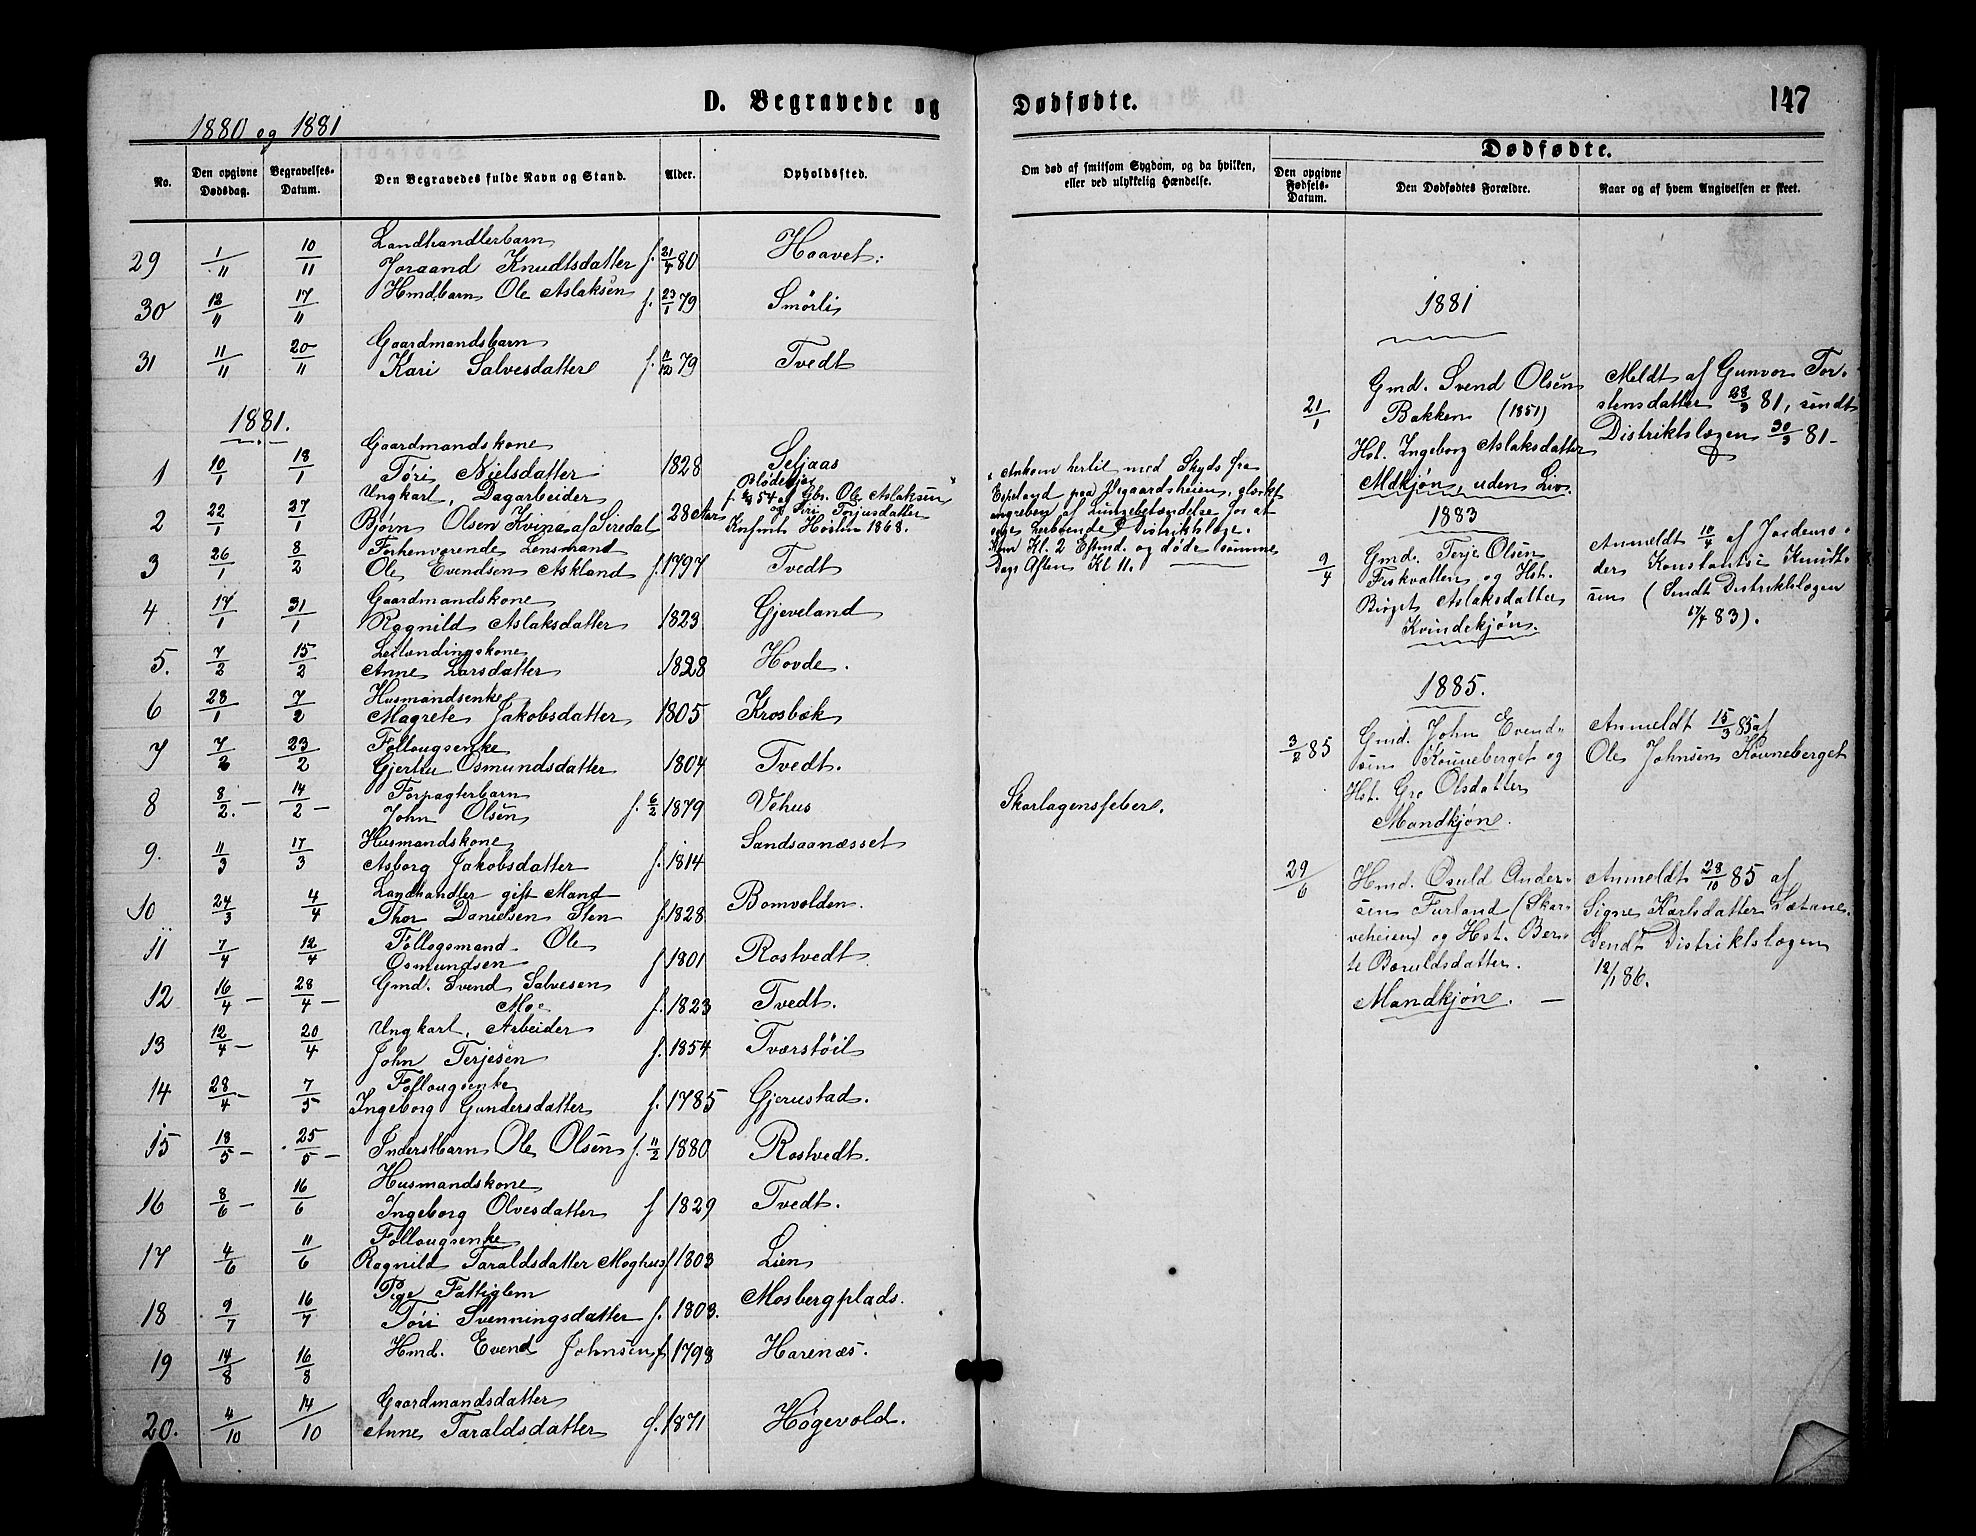 D. Begravede og
Dødfødte.
147
1880 og 1881
No.
Den opgivne Dødsdag.
Begravelses-Datum.
Den Begravedes fulde Navn og Stand.
Alder.
Opholdssted.
Om død af smitsom Sygdom, og da hvilken,
eller ved ulykkelig Hændelse.
Dødfødte.
Den opgivne Fødsels-Datum.
Den Dødfødtes Forældre.
Naar og af hvem Angivelsen er skeet.
Landhandlerbarn
29 1/11 10/11 Joraand Knudtsdatter f. 21/4 80 Haavet.
30 12/11 17/11 Hmdbarn Ole Aslaksen f. 23/1 79 Smørli
Gaardmandsbarn
31 11/11 20/11 Kari Salvesdatter f. 11/12 79 Tvedt
1881.
Gaardmandskone
1 10/1 18/1 Tøri Nielsdatter 1828 Seljaas
Ungkarl, Dagarbeider
2 22/1 27/1 Bjørn Olsen Kvina af Siredal 28 Aar
f. 54 af Gbr. Ole Aslaksen
og Siri
Knfmt. Høsten 1868.
Forhenværende Lensmand
3 26/1 8/2 Ole Evendsen Askland f. 1797 Tvedt
Gaardmandskone
4 17/1 31/1 Ragnild Aslaksdatter 1823 Gjeveland
Leilændingskone
5. 7/2 15/2 Anne Larsdatter 1828 Hovde.
Husmandsenke
6 28/1 7/2 Magrete Jakobsdatter 1805 Krosbæk
Follougsenke
7 7/2 23/2 Gjertru Osmundsdatter 1804 Tvedt.
Forpagterbarn
8 8/2. – 14/2 – John Olsen f. 6/2 1879 Vehus
Husmandskone
9. 11/3 17/3 Asborg Jakobsdatter f. 1814 Sandsaanæsset
Landhandler gift Mand
10 24/3 4/4 Thor Danielsen Sten f. 1828 Bomvolden.
Follogsmand Ole
11 7/4 12/4 Osmundsen f 1801 Rostvedt
Gmd. Svend Salvesen
12 16/4 – 28/4 – Moe f. 1823 Tvedt.
Ungkarl, Arbeider
13 12/4 – 20/4 John Terjesen f. 1854 Tværstøil
Follougsenke
14 28/4 – 7/5 Ingeborg Gundersdatter f. 1785 Gjerustad.
15 18/5 – 25/5 – Inderstbarn Ole Olsen f. 11/2 1880 Rostvedt.
Husmandskone
16 8/6 – 16/6 Ingeborg Olvesdatter f 1829 Tvedt.
Follougsenke
17 4/6 11/6 Ragnild Taraldsdatter Moghus f 1803 Lien
Pige Fattiglem
18 9/7 16/7 Tori Svenningsdatter f. 1803. Mosbergplads.
19 14/8 16/8 Hmd. Evend Johnsen f 1798 Harenæs.
Gaardmandsdatter
20. 4/10 14/10 Anne Taraldsdatter f. 1871 Høgevold.
Ankom hertil med Skyds fra
Espeland paa Vegaardsheien,
angreben af Lungebetændelse for at
søge herboende Distriktslæge.
Kom Kl. 2 Eftmd. og døde samme
Dags Aften Kl 11.
Skarlagensfeber.
1881
21/1
Gmd. Svend Olsen
Bakken (1851)
Hst. Ingeborg Aslaksdatter
Mdkjøn, uden Liv.
Meldt af Gunvor Tor-
stensdatter 28/3 81, sendt
Distriktslægen 30/3 81-
1883
9/4
Gmd. Terje Olsen
Fiskvatten og Hst.
Birget Aslaksdatter
Kvindekjøn.
Anmeldt 10/4 af Jordemo-
der Konstantse Knudt-
sen (Sendt Distriktslægen
17/4 83).
1885.
3/2 85
Gmd. John Evend-
sen Kouneberget og
Hst. Gro Olsdatter
Mandkjøn.
Anmeldt 15/3 85 af
Ole Johnsen Kouneberget
29/6
Hmd. Osuld Ander-
sen Furland (Skar-
veheien) og Hst. Ber-
te Baruldsdatter.
Mandkjøn. –
Anmeldt 28/10 85 af
Signe Karlsdatter Løtane.
Sendt Distriktslægen
12/1 86.